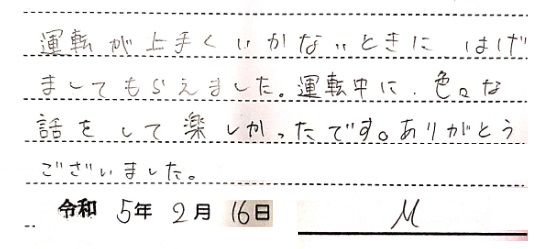 運転が上手くいかないときに はげ
ましてもらえました。運転中に、色々な
話をして楽しかったです。ありがとう
ございました。
令和 5年 2月 16日 M